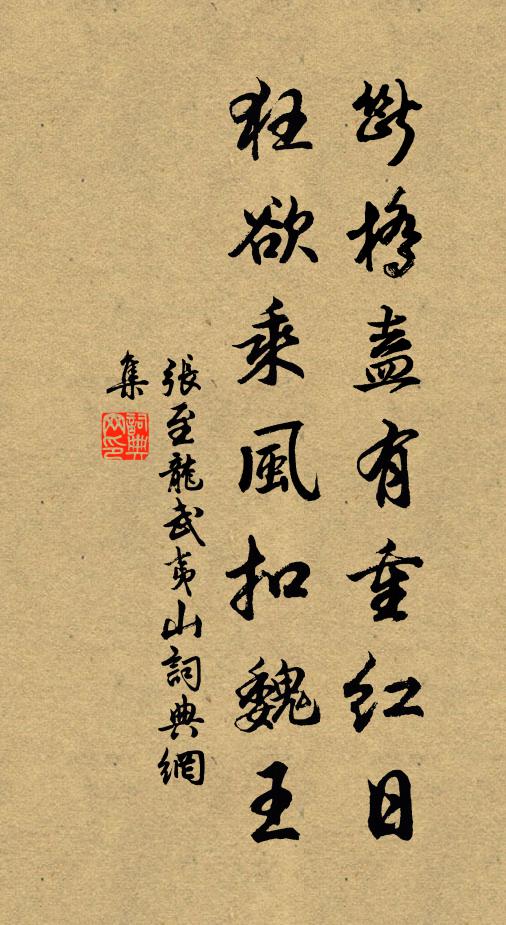 斷橋盍有重紅日
狂欲乘風扣魏王
張至龍武夷山詞典網
集
詞典
網印